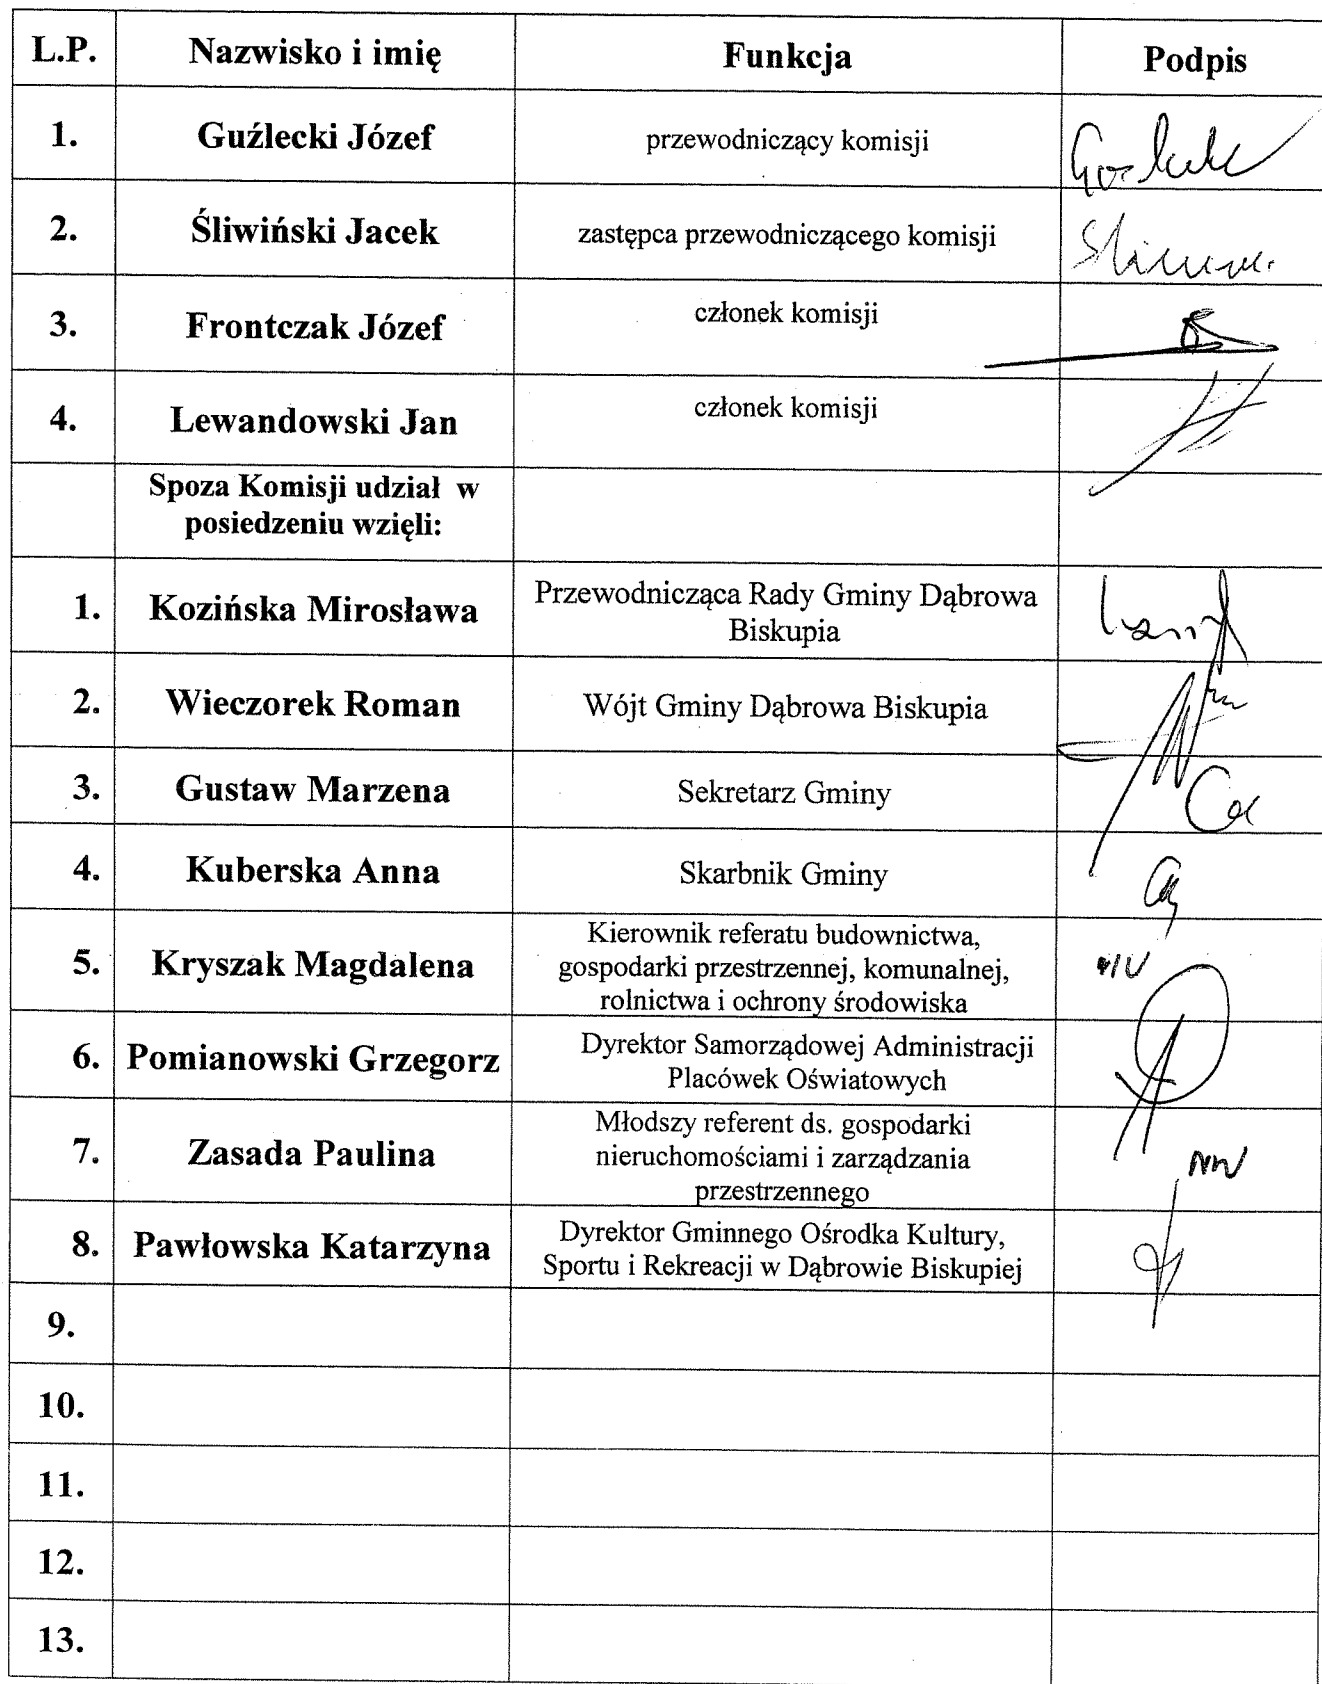 L.P. Nazwisko i imię Funkcja Podpis
1. Guźlecki Józef przewodniczący komisji
2. Śliwiński Jacek zastępca przewodniczącego komisji
3. Frontczak Józef członek komisji
4. Lewandowski Jan członek komisji
Spoza Komisji udział w
posiedzeniu wzięli:
1. Kozińska Mirosława Przewodnicząca Rady Gminy Dąbrowa
Biskupia
2. Wieczorek Roman Wójt Gminy Dąbrowa Biskupia
3. Gustaw Marzena Sekretarz Gminy
4. Kuberska Anna Skarbnik Gminy
5. Kryszak Magdalena Kierownik referatu budownictwa,
gospodarki przestrzennej, komunalnej,
rolnictwa i ochrony środowiska
6. Pomianowski Grzegorz Dyrektor Samorządowej Administracji
Placówek Oświatowych
7. Zasada Paulina Młodszy referent ds. gospodarki
nieruchomościami i zarządzania
przestrzennego
8. Pawłowska Katarzyna Dyrektor Gminnego Ośrodka Kultury,
Sportu i Rekreacji w Dąbrowie Biskupiej
9.
10.
11.
12.
13.